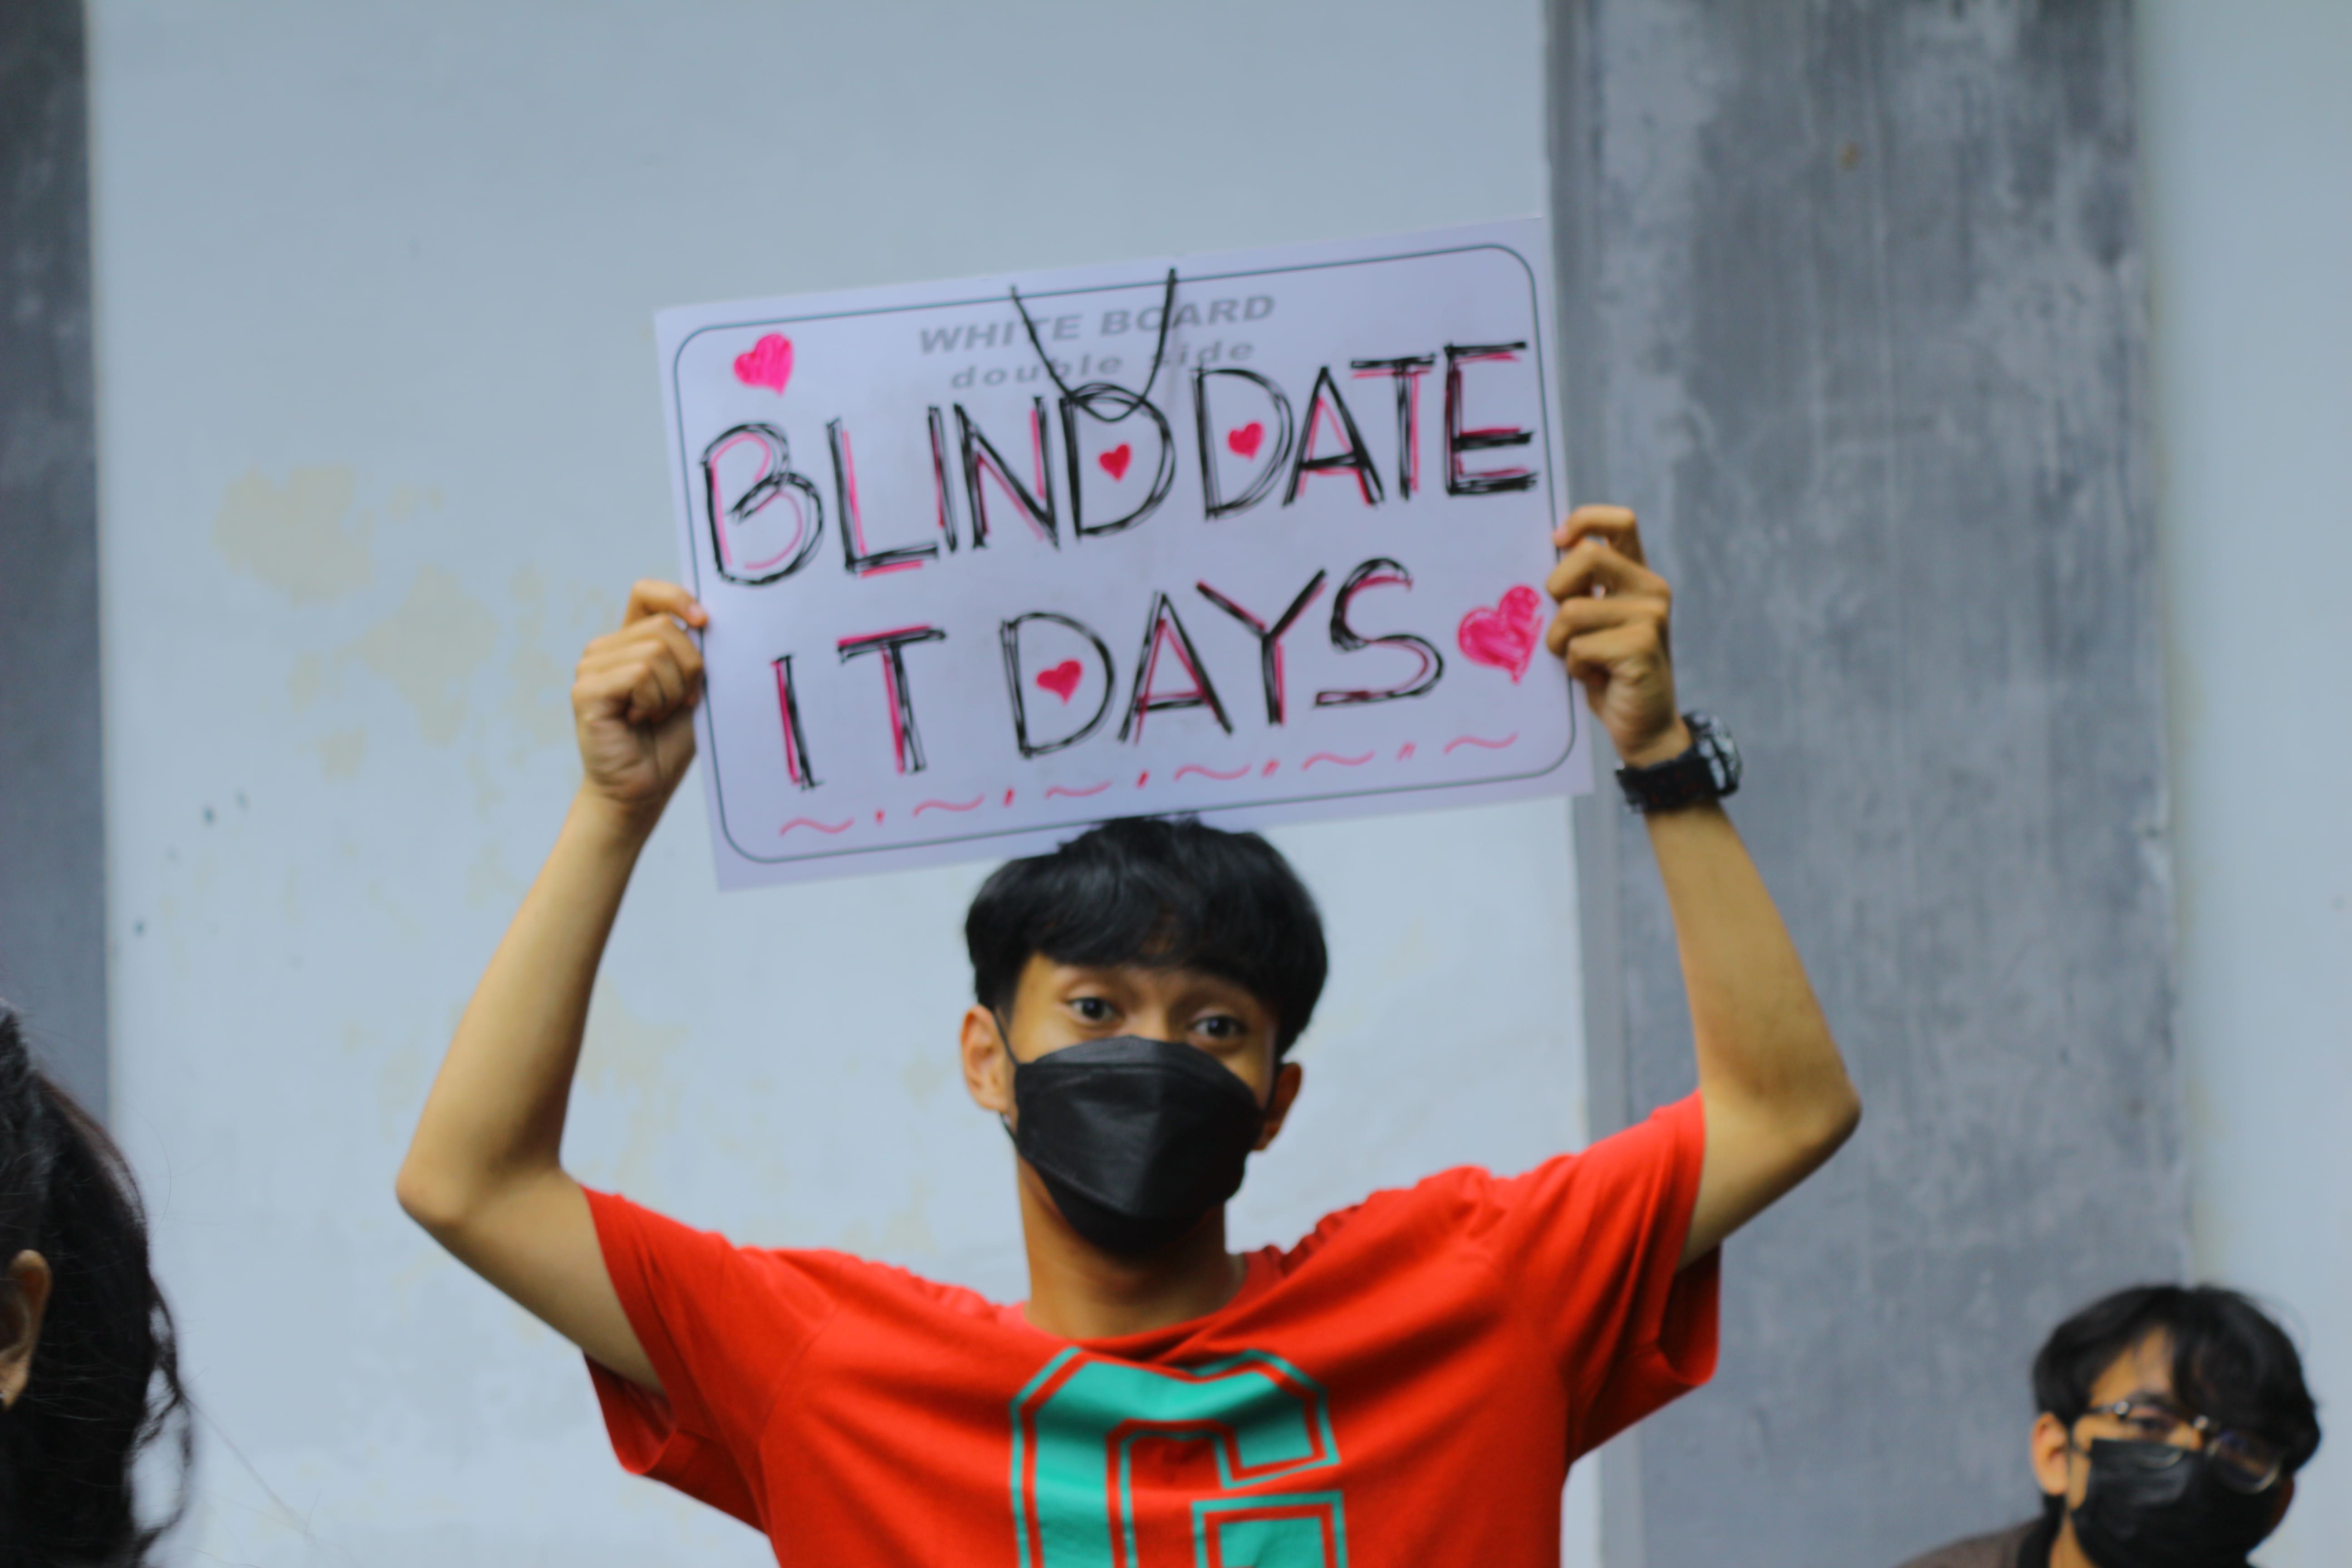 WHITE BOARD
double side
BLIND DATE
IT DAYS
G